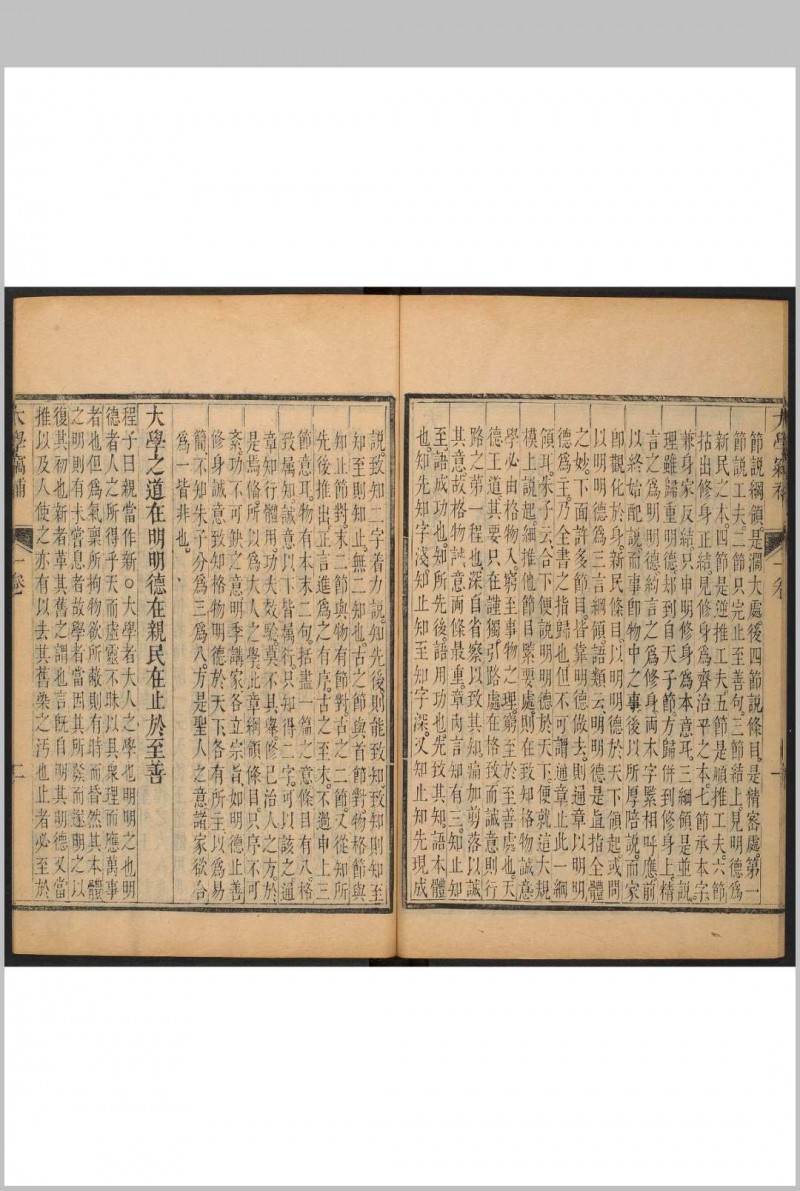 節說綱領是濶大處後四節說條目是精密處第一
節說工夫二節只完止至善句三節結上見明德爲
新民之本四節是逆推工夫五節是順推工夫六節
拈出修身正結見修身爲齊治平之本七節承本字
兼身家反結只申明修身爲本意耳三綱領是並說
理雖歸重明德却到自天子節方歸併到修身上精
言之爲明明德約言之爲修身兩本字緊相呼應前
以終始配說而事即物中之事後以所厚陪說而家
即觀化於身新民條目以明明德於天下領起或問
以明明德爲三言綱領語類云明明德是直指全體
之妙下面許多節目皆靠明德做去則通章以明明
德爲主乃全書之指歸也但不可謂通章止此一綱
領耳朱子云合下便說明明德於天下便就這大規
模上說起細推他節目緊要處則在致知格物誠意
學必由格物入窮至事物之理窮至於至善處也天
德王道其要只在謹獨引路處在格致而誠意則行
路之第一程也深自省察以致其知痛加剪落以誠
其意故格物誠意兩條最重章內言知有三知止知
至語成功也知所先後語用功也先致其知語本體
也知止知字淺知至知字深又知止知先現成
說致知二字着力說知先後則能致知致知則知至
知至則知止無二知也古之節與首節對物格節與
知止節對末二節與物有節對古之二節又從知所
先後推出正言進爲之有序古之至末不過申上三
節意耳物有本末二句括盡一篇之意條目有八格
致屬知誠意以下皆屬行只知得二字可以該之通
章知行體用功夫效驗莫不具舉修己治人之方於
是焉備所以爲大人之學此章綱領條目只序不可
紊功不可缺之意明季講家各立宗旨如明德止善
修身誠意致知格物明德於天下各有所主以爲易
簡不知朱子分爲三爲八方是聖人之意諸家欲合
爲一皆非也
大學之道在明明德在親民在止於至善
程子曰親當作新○大學者大人之學也明明之也明
德者人之所得乎天而虛靈不昧以具衆理而應萬事
者也但爲氣稟所拘物欲所蔽則有時而昏然其本體
之明則有未嘗息者故學者當因其所發而遂明之以
復其初也新者革其舊之謂也言旣自明其明德又當
推以及人使之亦有以去其舊染之汚也止者必至於
一卷
二